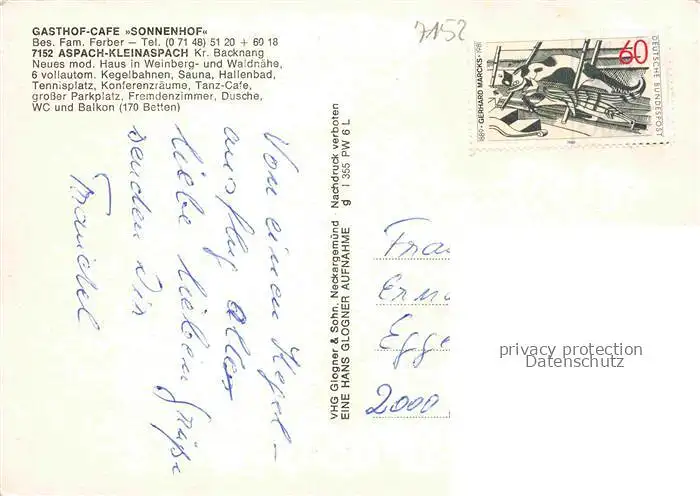 GASTHOF-CAFE »SONNENHOF«
Bes. Fam. Ferber – Tel. (0 71 48) 51 20 + 60 18
7152 ASPACH-KLEINASPACH Kr. Backnang
Neues mod. Haus in Weinberg- und Waldnähe,
6 vollautom. Kegelbahnen, Sauna, Hallenbad,
Tennisplatz, Konferenzräume, Tanz-Cafe,
großer Parkplatz, Fremdenzimmer, Dusche,
WC und Balkon (170 Betten)
7152
60
DEUTSCHE BUNDESPOST
1889 · GERHARD MARCKS · 1981
Von einem Kegel-
ausflug alles
liebe lieben Grüße
senden Dir
VHG Glogner & Sohn, Neckargemünd · Nachdruck verboten
EINE HANS GLOGNER AUFNAHME g I 355 PW 6 L
Frau
Erm
Egge
2000
privacy protection
Datenschutz